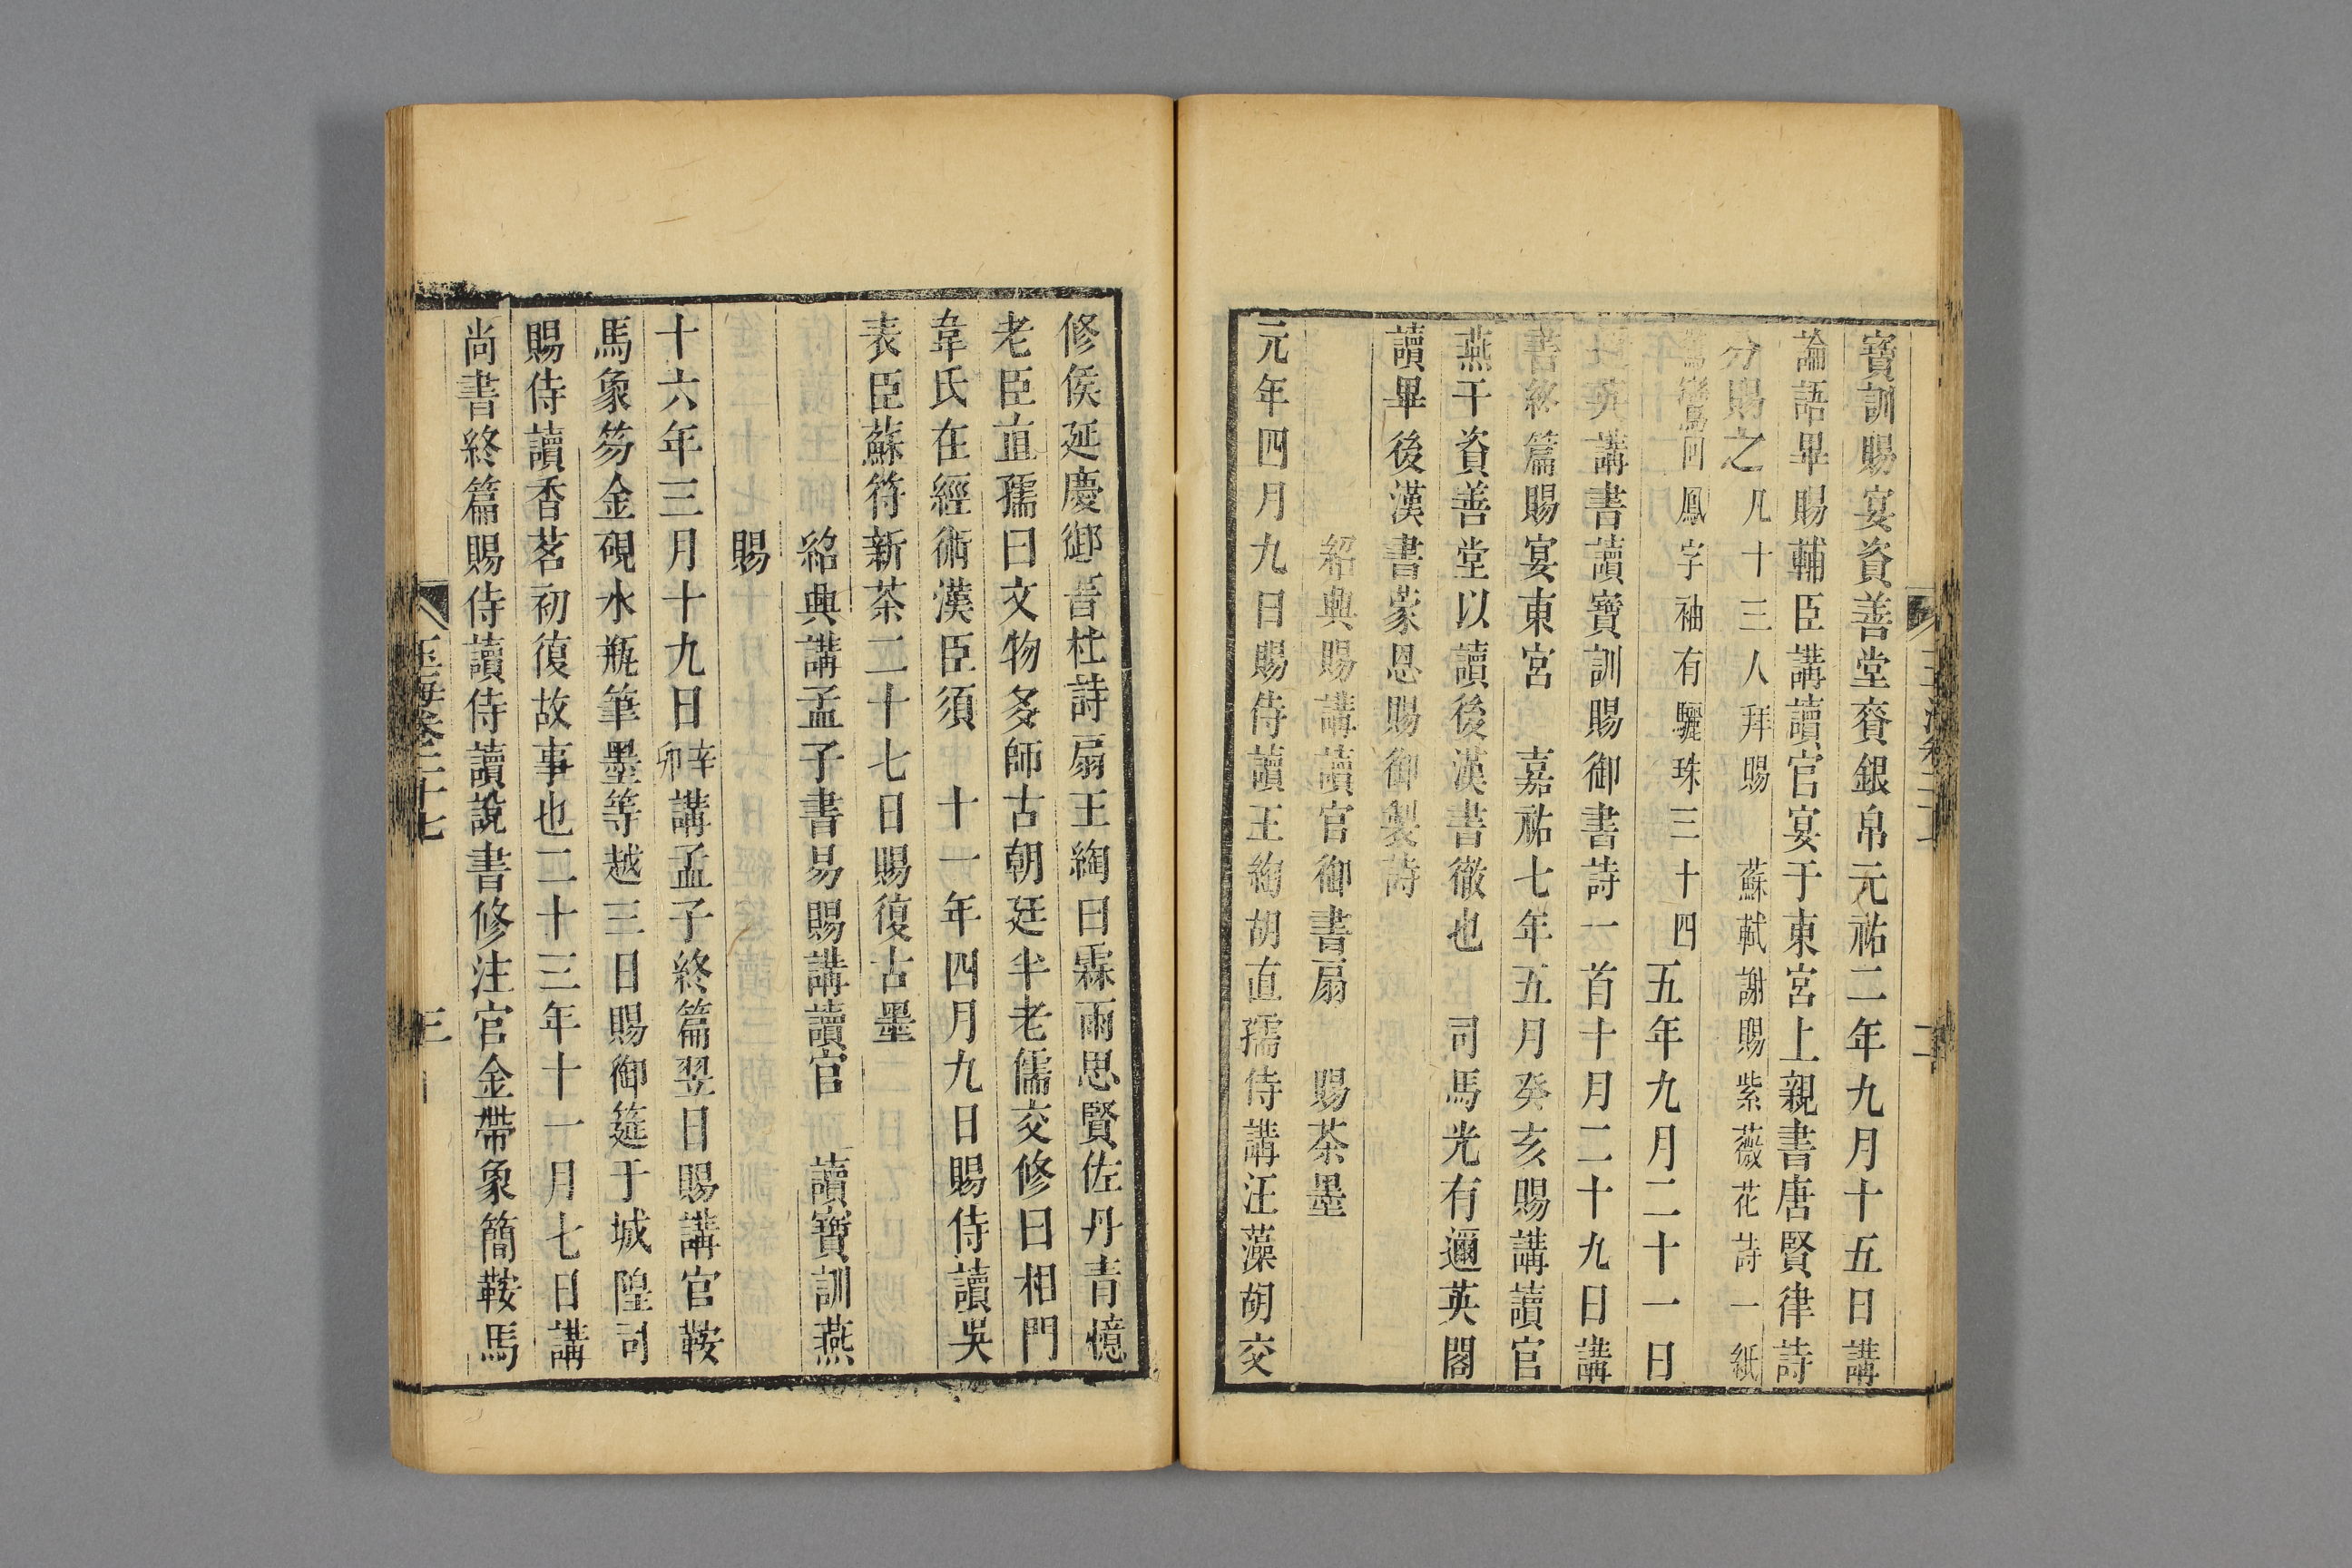 寶訓賜宴資善堂賚銀帛元祐二年九月十五日講
論語畢賜輔臣講讀官宴于東宮上親書唐賢律詩
分賜之凡十三人拜賜 蘇軾謝賜紫薇花詩一紙
鸞回鳳字袖有驪珠三十四五年九月二十一日
英講書讀寶訓賜御書詩一首十月二十九日講
書終篇賜宴東宮 嘉祐七年五月癸亥賜講讀官
燕于資善堂以讀後漢書徹也 司馬光有邇英閣
讀畢後漢書蒙恩賜御製詩
紹興賜講讀官御書扇 賜茶墨
元年四月九日賜侍讀王綯胡直孺侍講汪藻胡交
修侯延慶御書杜詩扇王綯曰霖雨思賢佐丹青憶
老臣直孺曰文物多師古朝廷半老儒交修曰相門
韋氏在經術漢臣須 十一年四月九日賜侍讀吳
表臣蘇符新茶二十七日賜復古墨
紹興講孟子書易賜講讀官 讀寶訓燕
賜
十六年三月十九日辛卯講孟子終篇翌日賜講官鞍
馬象笏金硯水瓶筆墨等越三日賜御筵于城隍司
賜侍讀香茗初復故事也二十三年十一月七日講
尚書終篇賜侍讀侍讀說書修注官金帶象簡鞍馬
玉海卷二十七 三